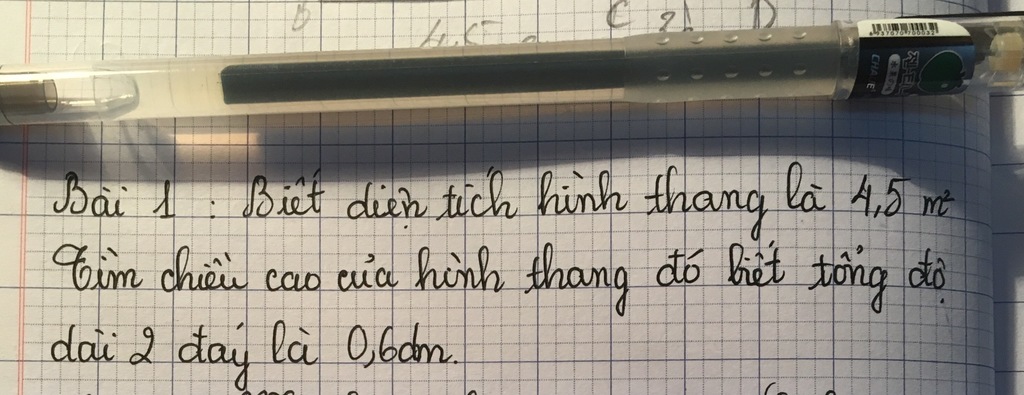 B
C
D
4,5
6937670700032
Bài 1 : Biết diện tích hình thang là 4,5 m²
Tìm chiều cao của hình thang đó biết tổng độ
dài 2 đáy là 0,6dm.